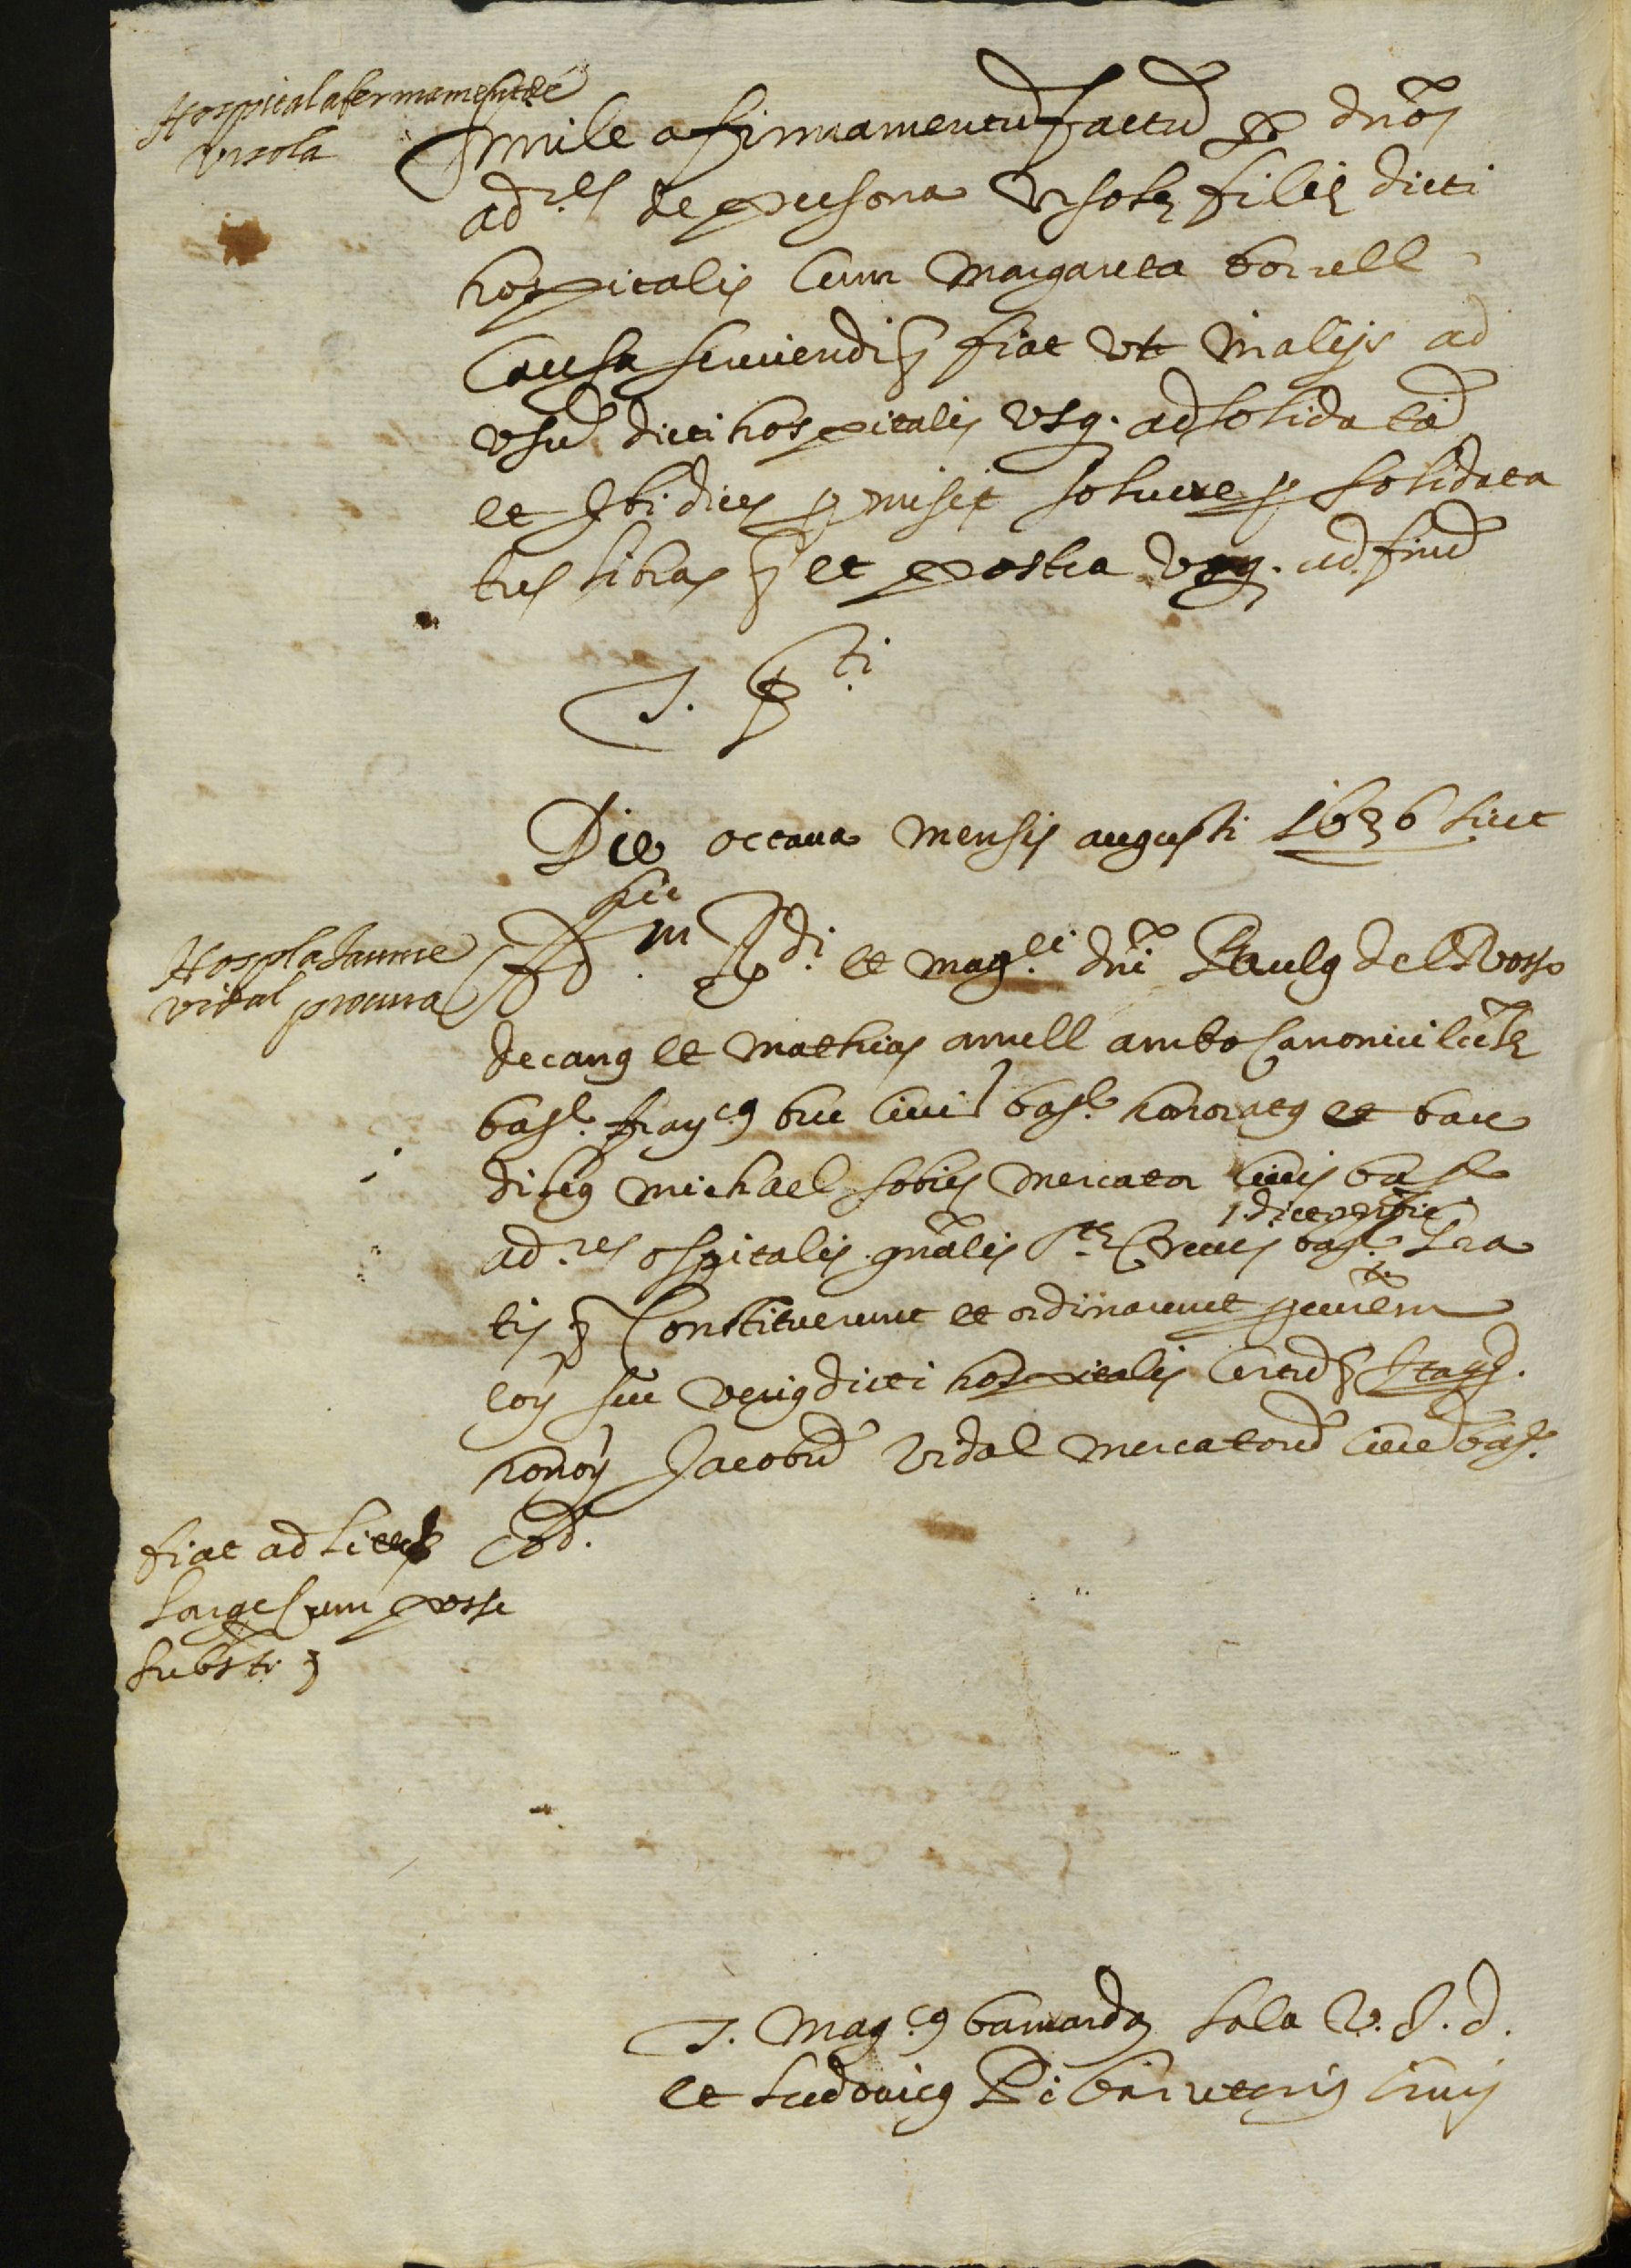 Hospital afermament de
Ursola
Simile afirmamentu factu per dños
ad.res de persona Ursolę filię dicti
hospitalis cum Margarita borrell
causa serviendi fiat ut in alijs ad
usu dicti hospitalis usq. ad solidatã
et ibi dicens promisit solvere pro solidata
tres libras et postea usq. ad finẽ
T. p.ti
Die octava mensis augusti 1636 sive
hic
Hospl a Jaume
vidal procura
Ad.m R.di et mag.ci dñi Paulus del Rosso
decanus et Mathias amell ambo canonici
bar. fran.cus buc civis bar. honoratus et bau
dilius michael sobies mercator civis bar
ad.res ospitalis gñalis S.tę Crucis bar.
tis constituerunt et ordinaverunt procurem
eorum sive verius dicti hospitalis certu
honor Jacobu vidal mercatore cive bar.
fiat ad lites
large cum posse
substi
T. Mag.cus bernardus sala U. J. d.
et Ludovicus